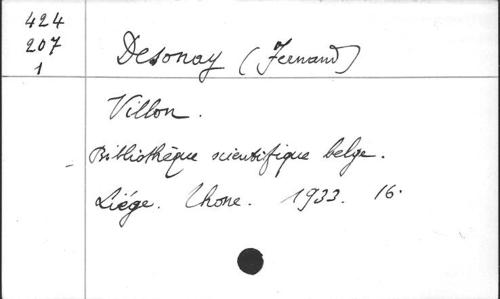 424
207
1
Desonay (Fernand)
Villon.
Bibliothèque scientifique belge.
Liége. Thone. 1933. 16.